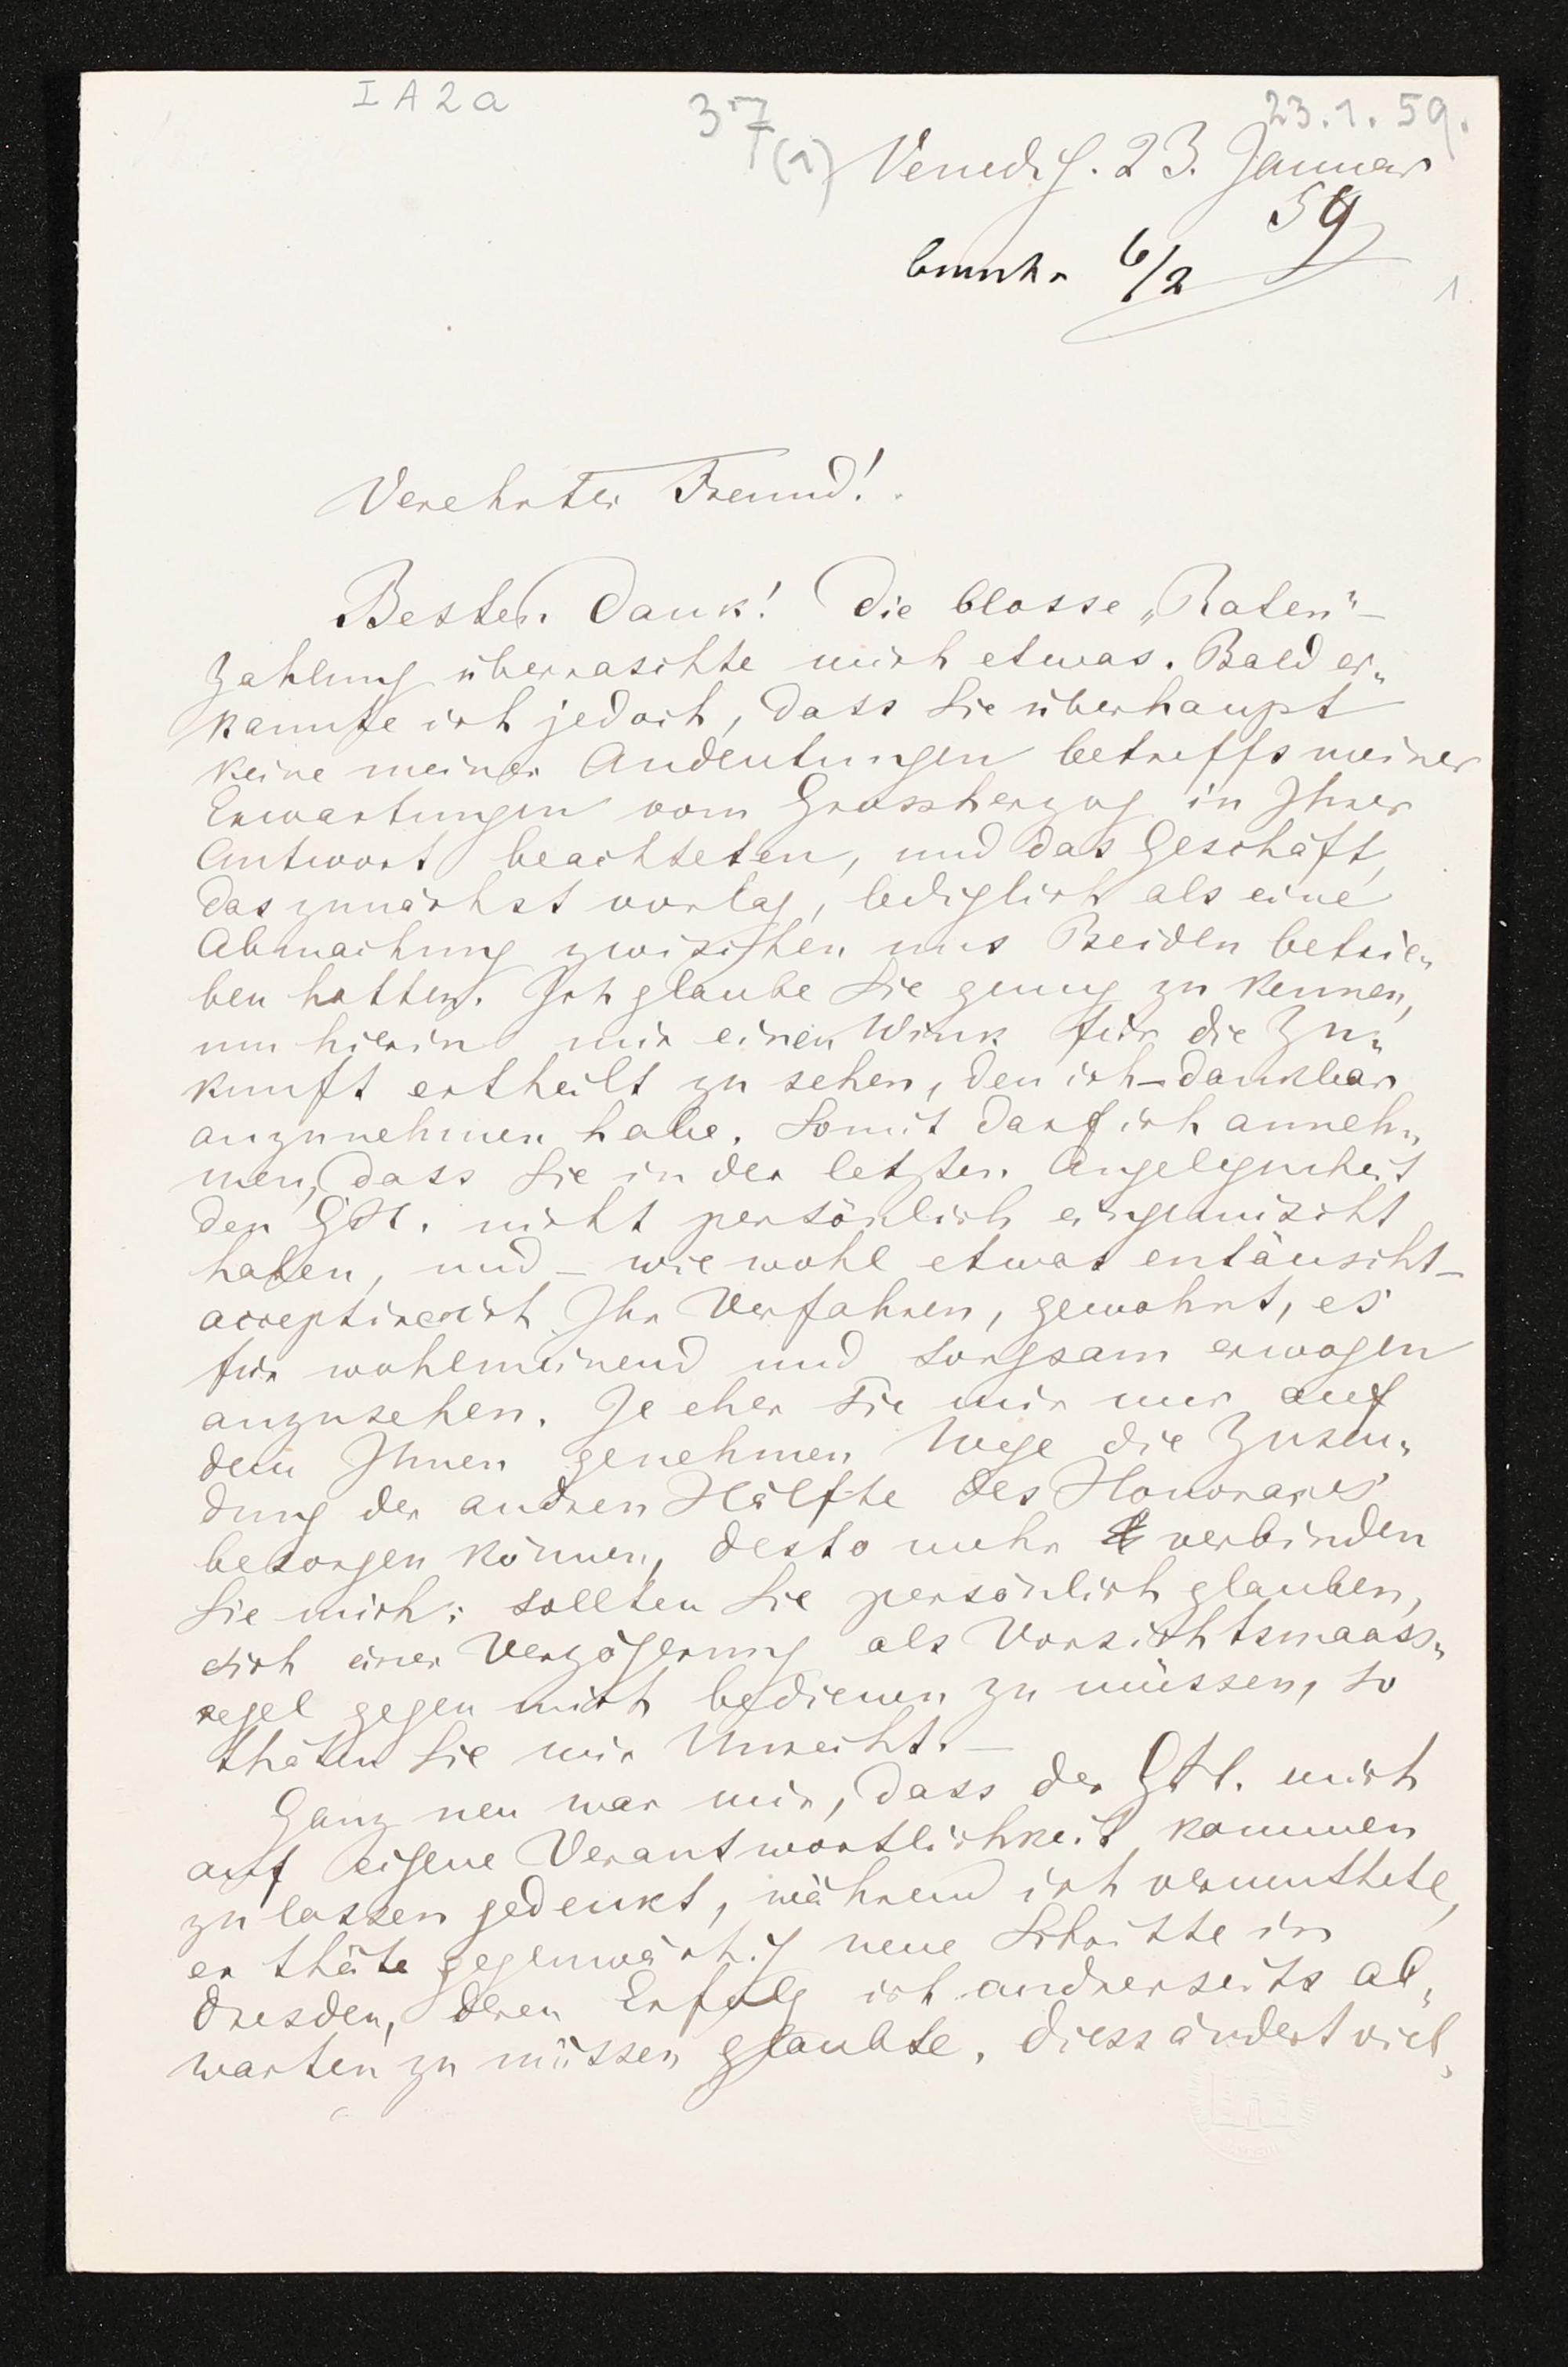 I A 2 a
37
(1)
23.1.59.
Venedig. 23. Januar
59
6/2
1
Verehrter Freund!
Besten Dank! Die blosse „Raten"-
zahlung überraschte mich etwas. Bald er„
kannte ich jedoch, dass Sie überhaupt
keine meiner Andeutungen betreffs meiner
Erwartungen vom Grossherzog in Ihrer
Antwort beachteten, und das Geschäft,
das zunächst vorlag, lediglich als eine
Abmachung zwischen uns Beiden betrie„
ben hatten. Ich glaube Sie genug zu kennen,
um hierin mir einen Wink für die Zu„
kunft ertheilt zu sehen, den ich – dankbar
anzunehmen habe. Somit darf ich anneh„
men, dass Sie in der letzten Angelegenheit
den GH. nicht persönlich eingemischt
haben, und – wiewohl etwas entäuscht –
acceptire ich Ihr Verfahren, gewohnt, es
für wohlmeinend und sorgsam erwogen
anzusehen. Je eher Sie mir nur auf
dem Ihnen genehmen Wege die Zusen„
dung der andren Hälfte des Honorares
besorgen können, desto mehr verbinden
Sie mich: sollten Sie persönlich glauben,
sich einer Verzögerung als Vorsichtsmaass„
regel gegen mich bedienen zu müssen, so
thäten Sie mir Unrecht. –
Ganz neu war mir, dass der GH. mich
auf eigene Verantwortlichkeit kommen
zu lassen gedenkt, während ich vermuthete,
er thäte gegenwärtig neue Schritte in
Dresden, deren Erfolg ich andrerseits ab„
warten zu müssen glaubte. Diess ändert viel„